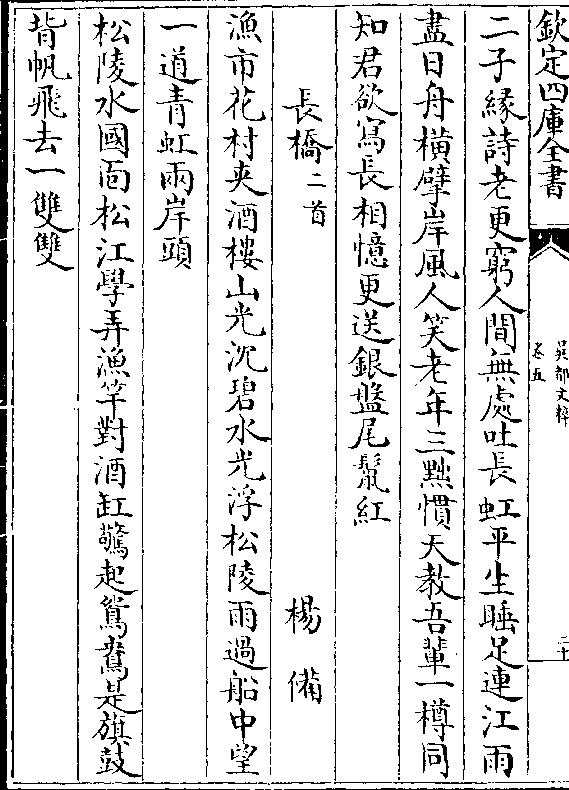 欽定四庫全書
吳都文粹
卷五
二十
二子緣詩老更窮人間無處吐長虹平生睡足連江雨
盡日舟橫擘岸風人笑老年三黜慣天教吾輩一樽同
知君欲寫長相憶更送銀盤尾鬣紅
長橋二首
楊備
漁市花村夾酒樓山光沉碧水光浮松陵雨過船中望
一道青虹兩岸頭
松陵水國面松江學弄漁竿對酒缸驚起鴛鴦是旗鼓
背帆飛去一雙雙